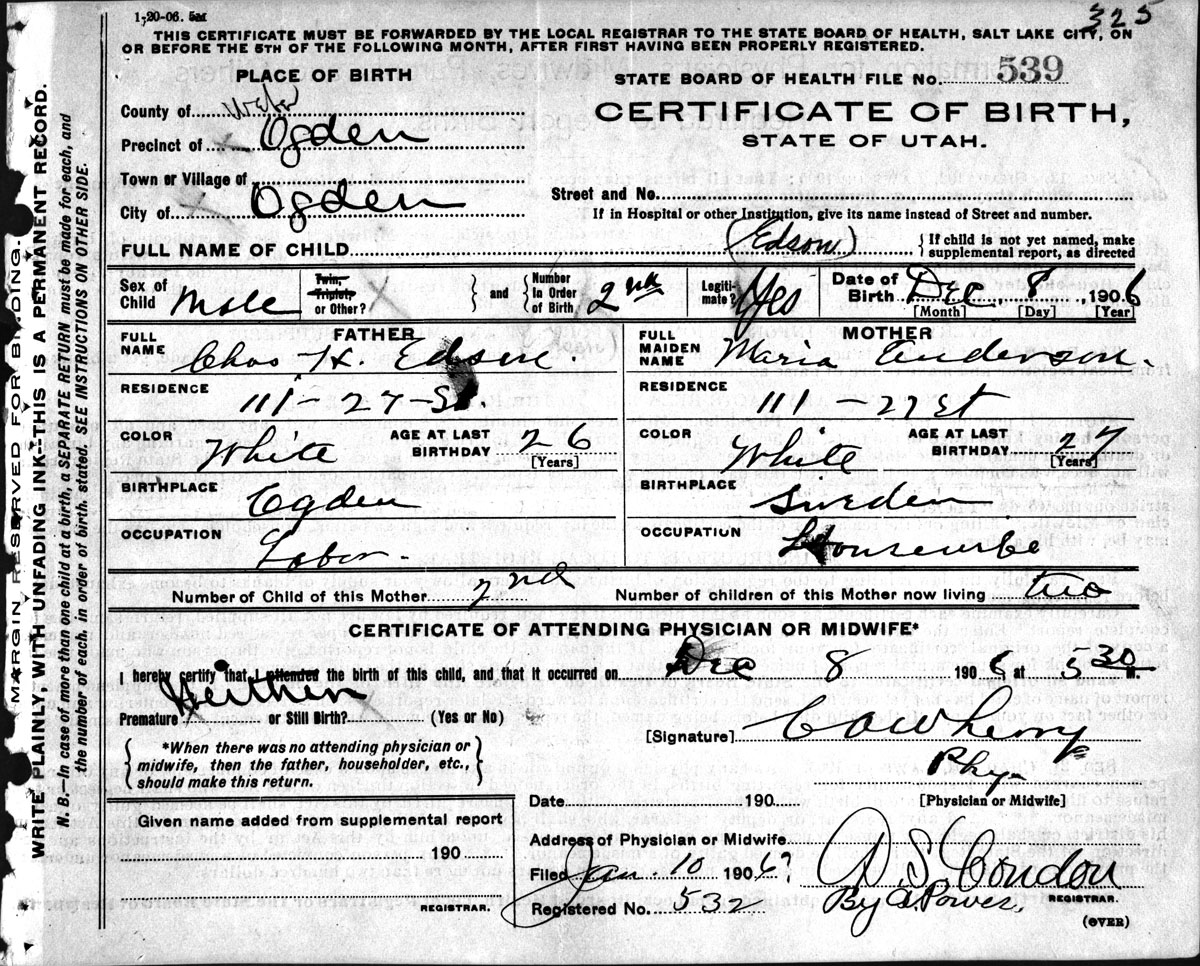 1-20-06. 5M
325
THIS CERTIFICATE MUST BE FORWARDED BY THE LOCAL REGISTRAR TO THE STATE BOARD OF HEALTH, SALT LAKE CITY, ON
OR BEFORE THE 5TH OF THE FOLLOWING MONTH, AFTER FIRST HAVING BEEN PROPERLY REGISTERED.
MARGIN RESERVED FOR BINDING.
WRITE PLAINLY, WITH UNFADING INK--THIS IS A PERMANENT RECORD.
N. B.--In case of more than one child at a birth, a SEPARATE RETURN must be made for each, and
the number of each, in order of birth, stated. SEE INSTRUCTIONS ON OTHER SIDE.
PLACE OF BIRTH
STATE BOARD OF HEALTH FILE No. 539
County of Weber
CERTIFICATE OF BIRTH,
Precinct of Ogden
STATE OF UTAH.
Town or Village of
Street and No.
City of Ogden
If in Hospital or other Institution, give its name instead of Street and number.
FULL NAME OF CHILD (Edson) { If child is not yet named, make
supplemental report, as directed
Sex of Child Male
Twin, Triplet, or Other? } and { Number In Order of Birth 2nd
Legitimate? Yes
Date of Birth Dec, 8 1906
[Month] [Day] [Year
FATHER
MOTHER
FULL NAME Chas H. Edson
FULL MAIDEN NAME Maria Anderson.
RESIDENCE 111-27-St.
RESIDENCE 111-27 St
COLOR White AGE AT LAST BIRTHDAY 26 [Years]
COLOR White AGE AT LAST BIRTHDAY 27 [Years]
BIRTHPLACE Ogden
BIRTHPLACE Sweden
OCCUPATION Labor.
OCCUPATION Housewife
Number of Child of this Mother 2nd
Number of children of this Mother now living two
CERTIFICATE OF ATTENDING PHYSICIAN OR MIDWIFE*
I hereby certify that I attended the birth of this child, and that it occurred on Dec 8 1906 at 5 30 M.
Neither
Premature or Still Birth? (Yes or No)
[Signature]
Phy-
[Physician or Midwife]
{ *When there was no attending physician or
midwife, then the father, householder, etc.,
should make this return. }
Date 190
Given name added from supplemental report
190
REGISTRAR.
Address of Physician or Midwife
Filed Jan. 10 1906?
Registered No. 532
D S Condon
By A. Power,
REGISTRAR.
(OVER)